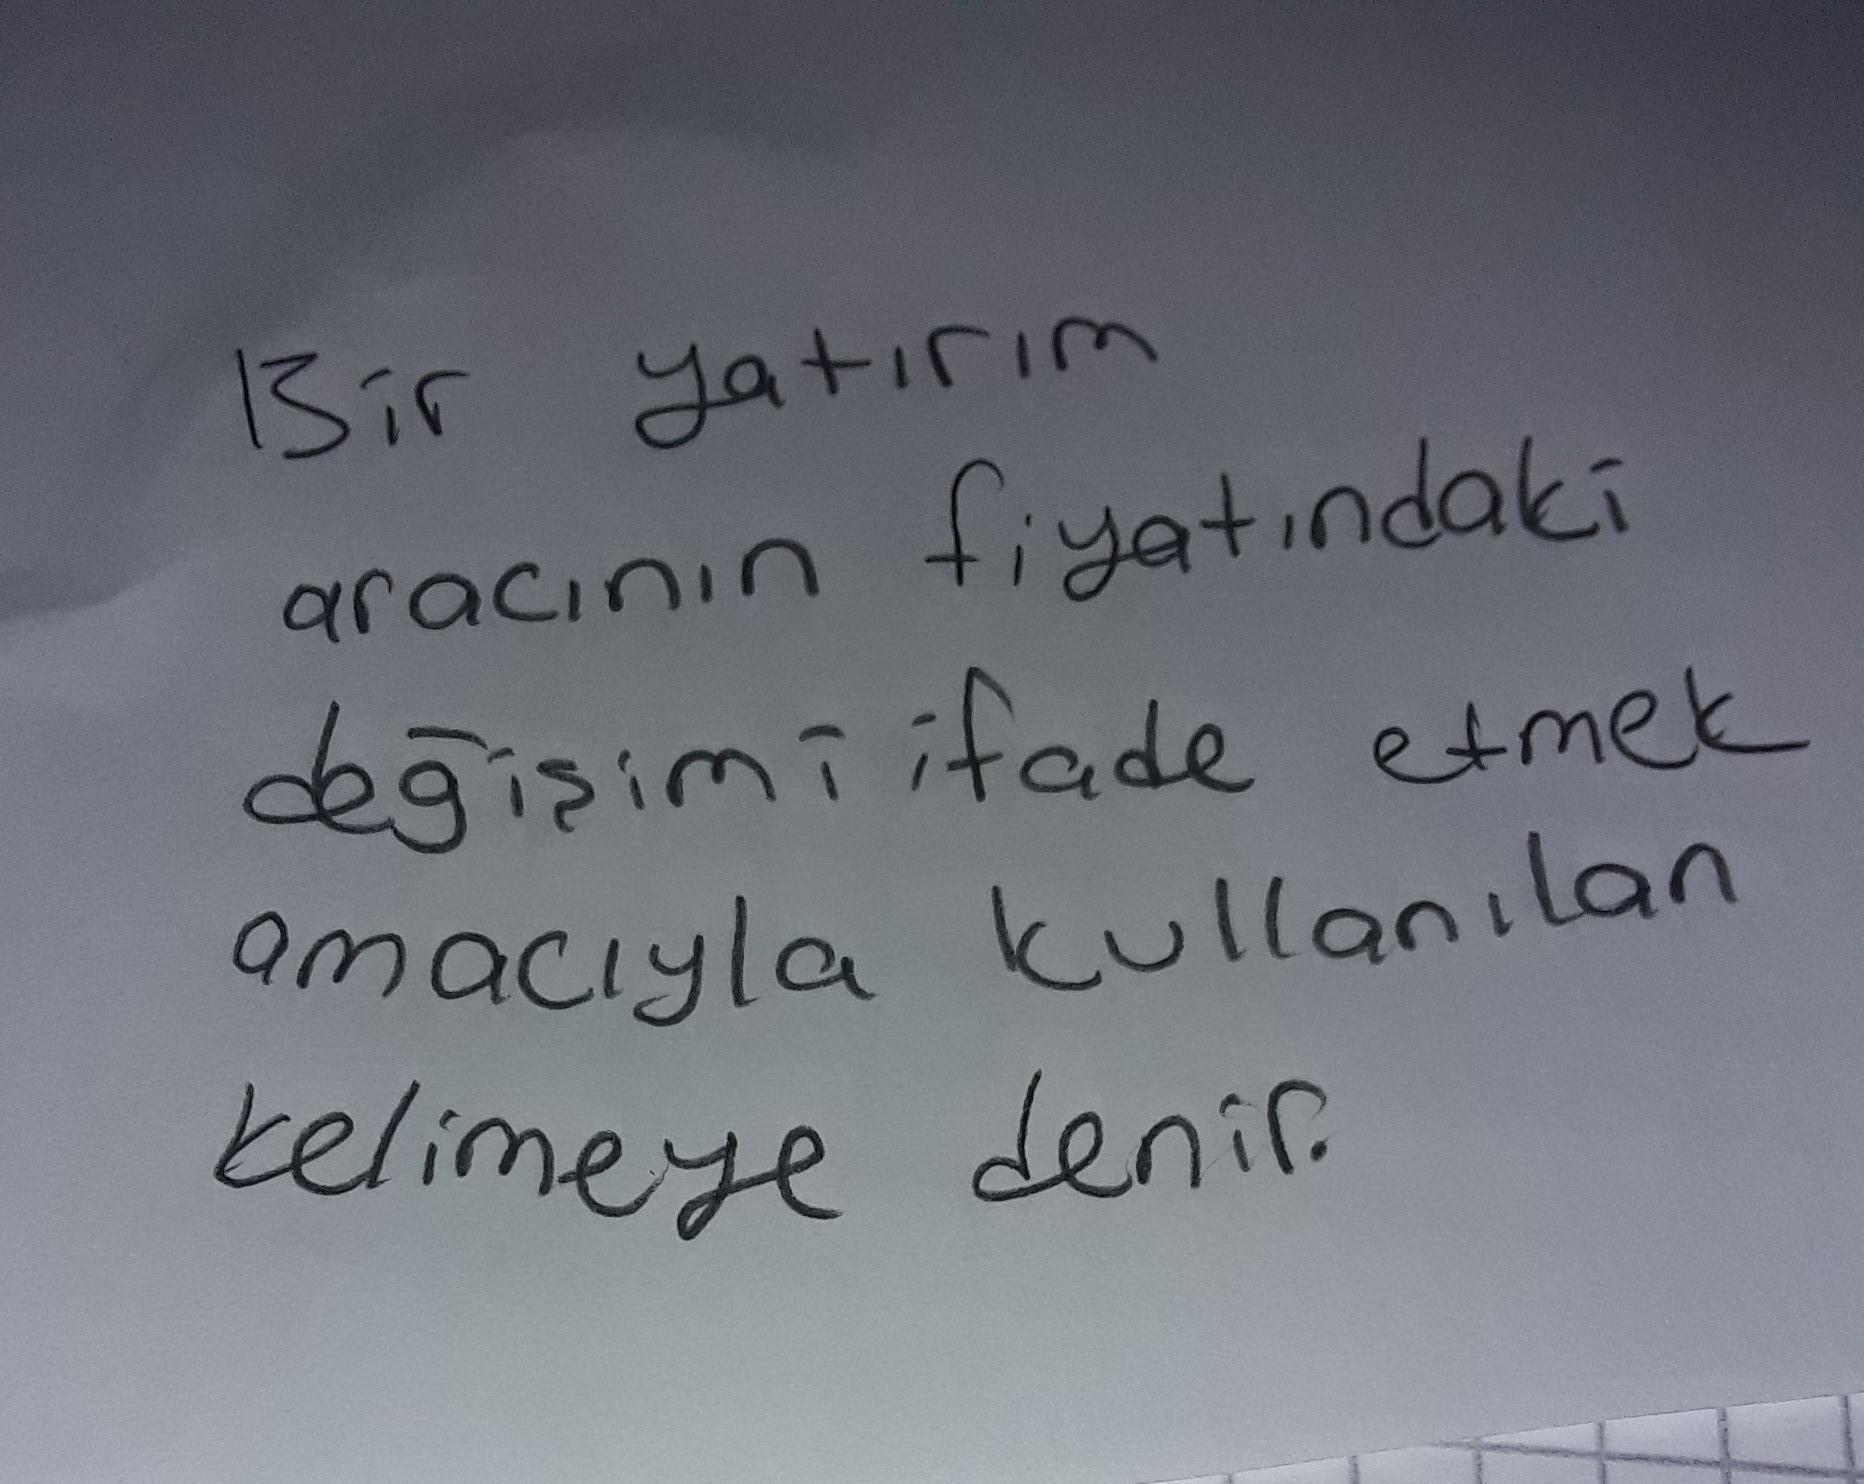 Bir yatırım
aracının fiyatındaki
değişimi ifade etmek
amacıyla kullanılan
kelimeye denir.